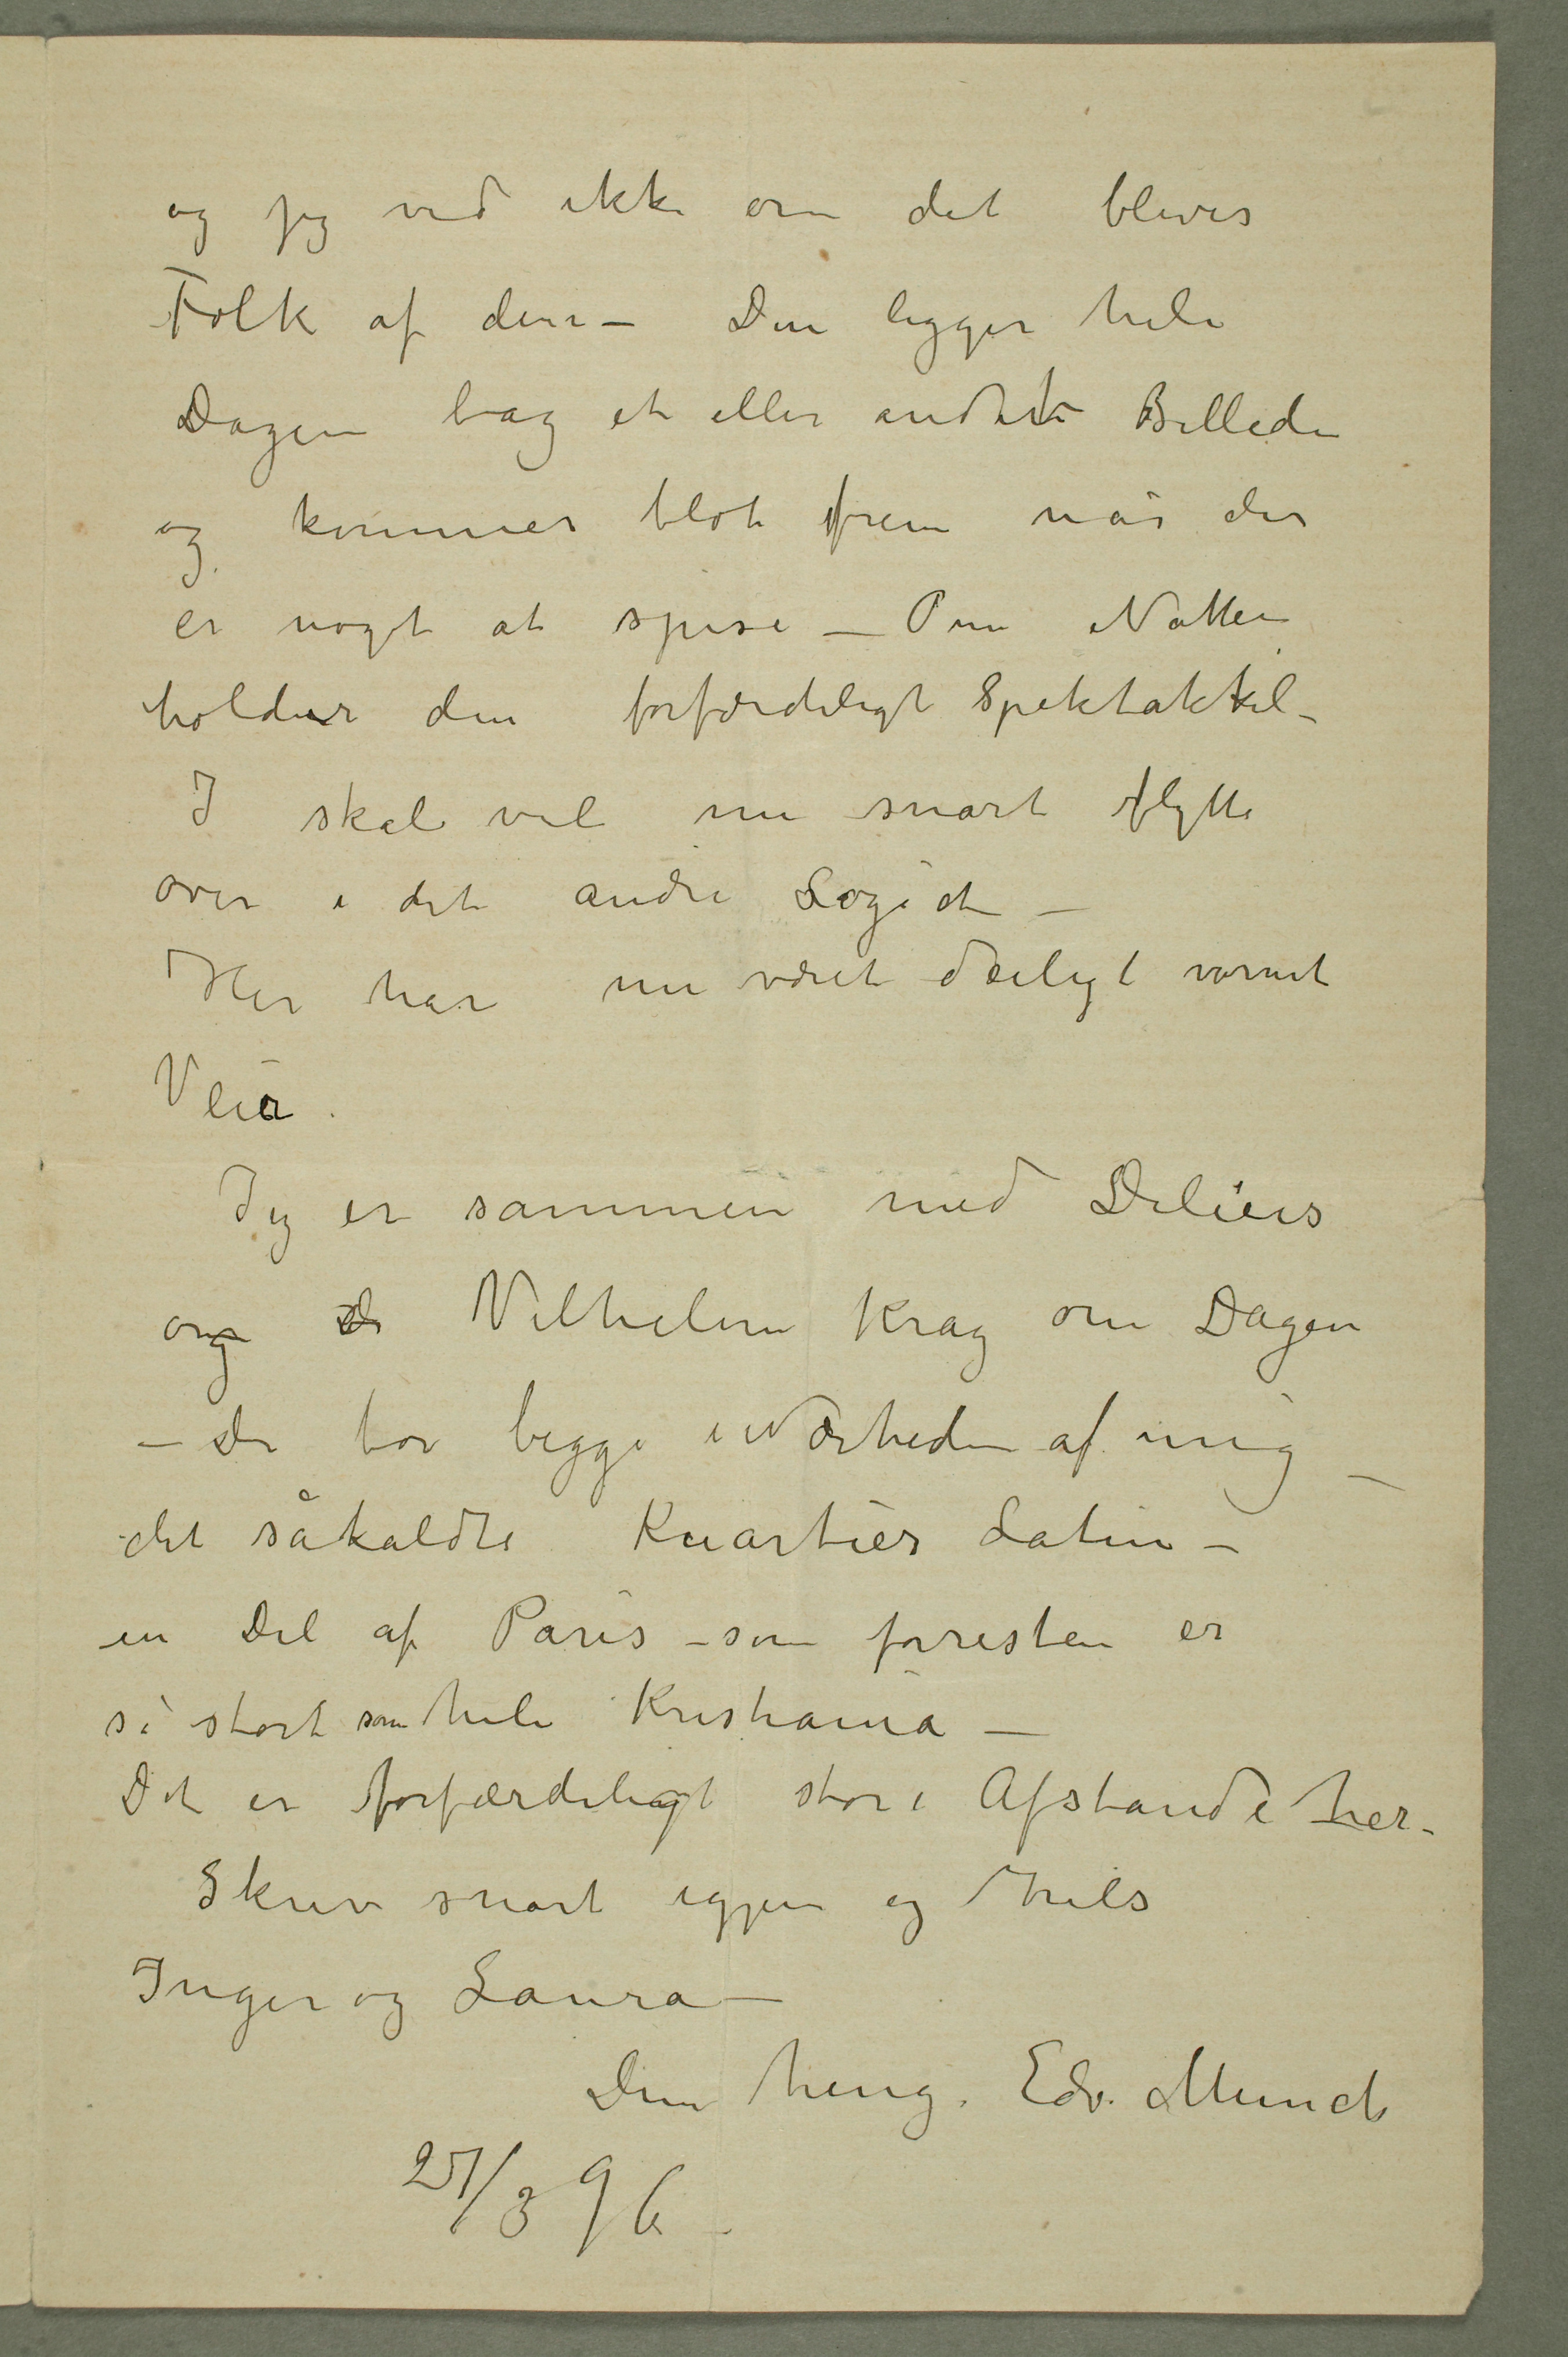 og jeg ved ikke om det bliver
Folk af den – Den ligger hele
Dagen bag et eller andet Billede
og kommer blot frem når der
er noget at spise – Om Natten
holder den forfærdeligt Spektakkel –
I skal vel nu snart flytte
over i det andre Logiet –
Her har nu været deiligt varmt
Veir.
Jeg er sammen med Delius
og Vilhelm Krag om Dagen
– De bor begge i Nærheden af mig –
det såkaldte Kuartier Latin –
en Del af Paris – som forresten er
så stort som hele Kristiania –
Det er forfærdeligt store Afstande her.
Skriv snart igjen og hils
Inger og Laura –
Din heng. Edv. Munch
27/3 96.